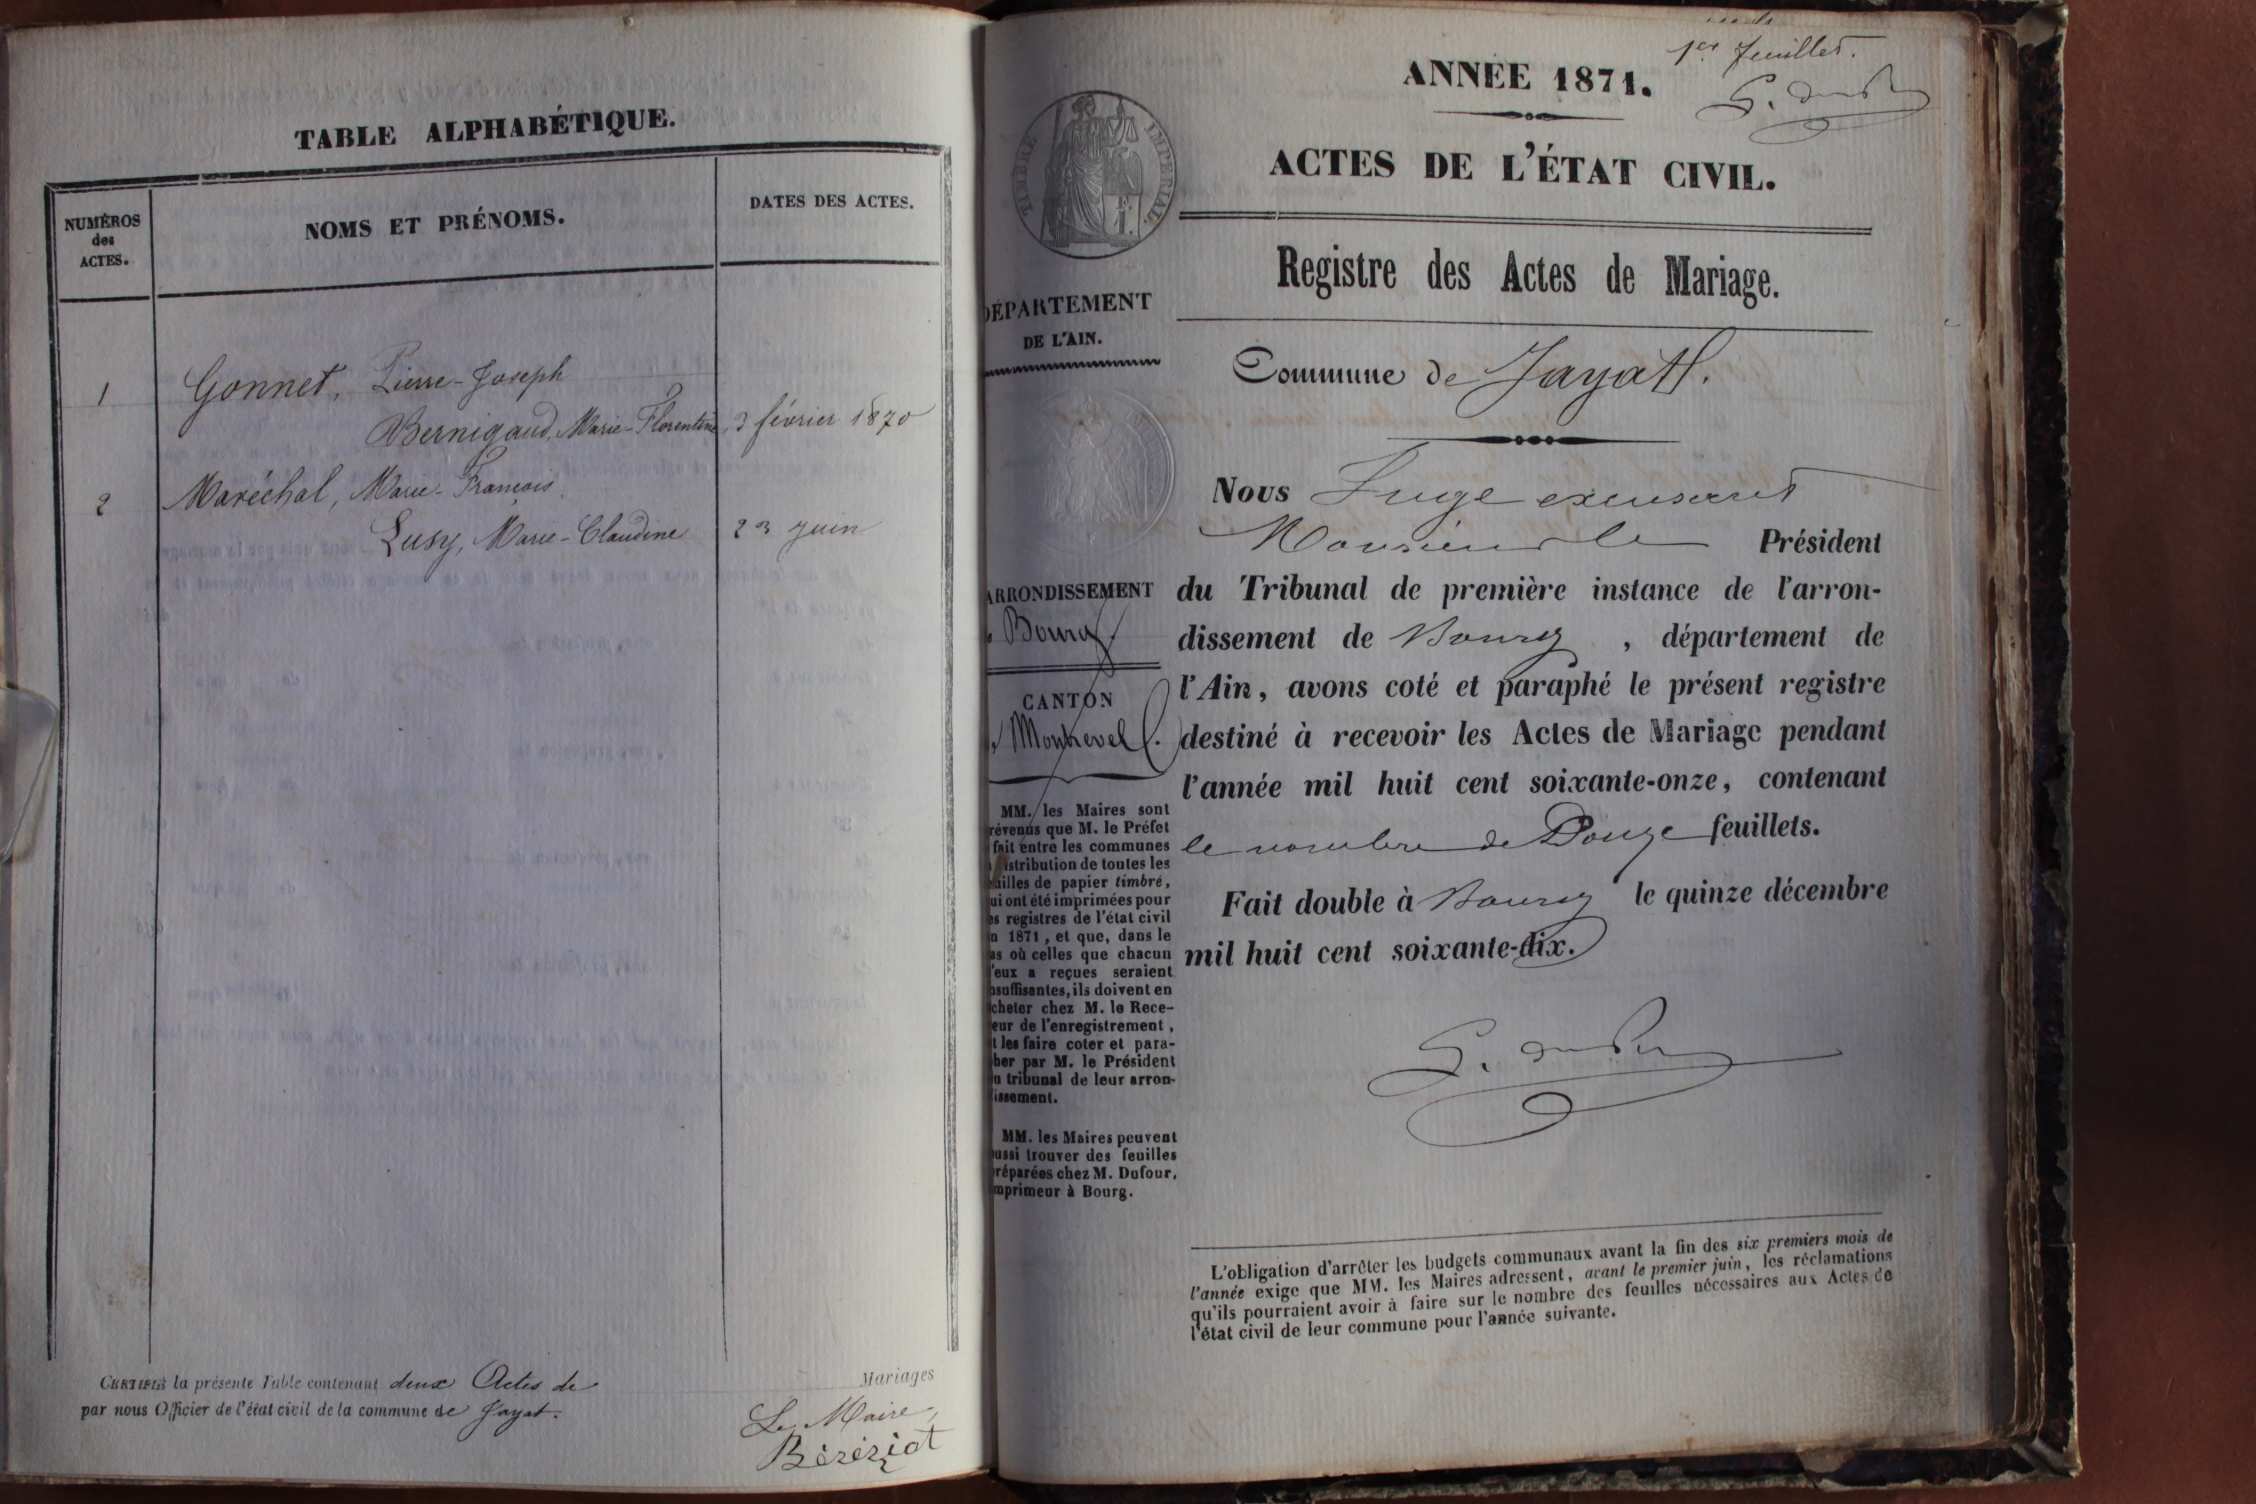 TABLE ALPHABÉTIQUE.
NUMÉROS
des
ACTES.
NOMS ET PRÉNOMS.
DATES DES ACTES.
1
Gonnet, Pierre-Joseph
Bernigaud, Marie-Florentine, 3 février 1870
2
Maréchal, Marie-François
Lusy, Marie-Claudine
23 juin
CERTIFIÉ la présente Table contenant deux Actes de Mariages
par nous Officier de l'état civil de la commune de Jayat.
Le Maire,
Béréziat
1er feuillet.
ANNÉE 1871.
ACTES DE L'ÉTAT CIVIL.
TIMBRE IMPÉRIAL.
Registre des Actes de Mariage.
DÉPARTEMENT
DE L'AIN.
ARRONDISSEMENT
Bourg
CANTON
Montrevel.
MM. les Maires sont
prévenus que M. le Préfet
fait entre les communes
distribution de toutes les
feuilles de papier timbré,
qui ont été imprimées pour
les registres de l'état civil
en 1871, et que, dans le
cas où celles que chacun
d'eux a reçues seraient
insuffisantes, ils doivent en
acheter chez M. le Rece-
veur de l'enregistrement,
et les faire coter et para-
pher par M. le Président
du tribunal de leur arron-
dissement.
MM. les Maires peuvent
aussi trouver des feuilles
préparées chez M. Dufour,
imprimeur à Bourg.
Commune de Jayat.
Nous Juge exerçant
Monsieur le Président
du Tribunal de première instance de l'arron-
dissement de Bourg, département de
l'Ain, avons coté et paraphé le présent registre
destiné à recevoir les Actes de Mariage pendant
l'année mil huit cent soixante-onze, contenant
le nombre de Douze feuillets.
Fait double à Bourg le quinze décembre
mil huit cent soixante-dix.
L'obligation d'arrêter les budgets communaux avant la fin des six premiers mois de
l'année exige que MM. les Maires adressent, avant le premier juin, les réclamations
qu'ils pourraient avoir à faire sur le nombre des feuilles nécessaires aux Actes de
l'état civil de leur commune pour l'année suivante.